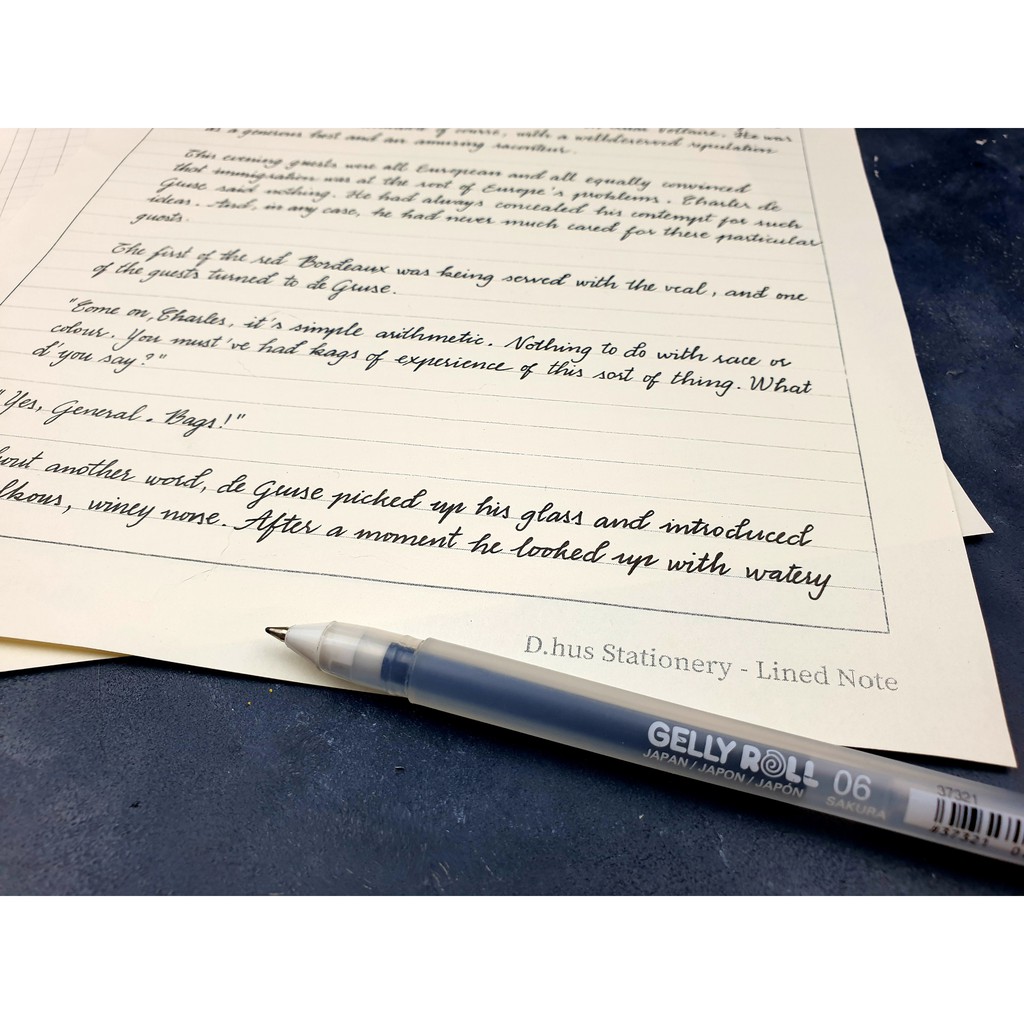 Voltaire. He was
as a generous host and an amusing raconteur.
This evening guests were all European and all equally convinced
that immigration was at the root of Europe's problems. Charles de
Geuse said nothing. He had always concealed his contempt for such
ideas. And, in any case, he had never much cared for these particular
guests.
The first of the red Bordeaux was being served with the veal, and one
of the guests turned to de Geuse.
"Come on, Charles, it's simple arithmetic. Nothing to do with race or
colour. You must've had bags of experience of this sort of thing. What
d'you say?"
"Yes, General. Bags!"
another word, de Geuse picked up his glass and introduced
winey nose. After a moment he looked up with watery
D.hus Stationery - Lined Note
GELLY ROLL 06
JAPAN / JAPON / JAPÓN SAKURA
37321